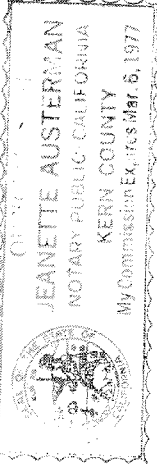 JEANETTE AUSTERMAN
NOTARY PUBLIC · CALIFORNIA
KERN COUNTY
My Commission Expires Mar. 6, 1977